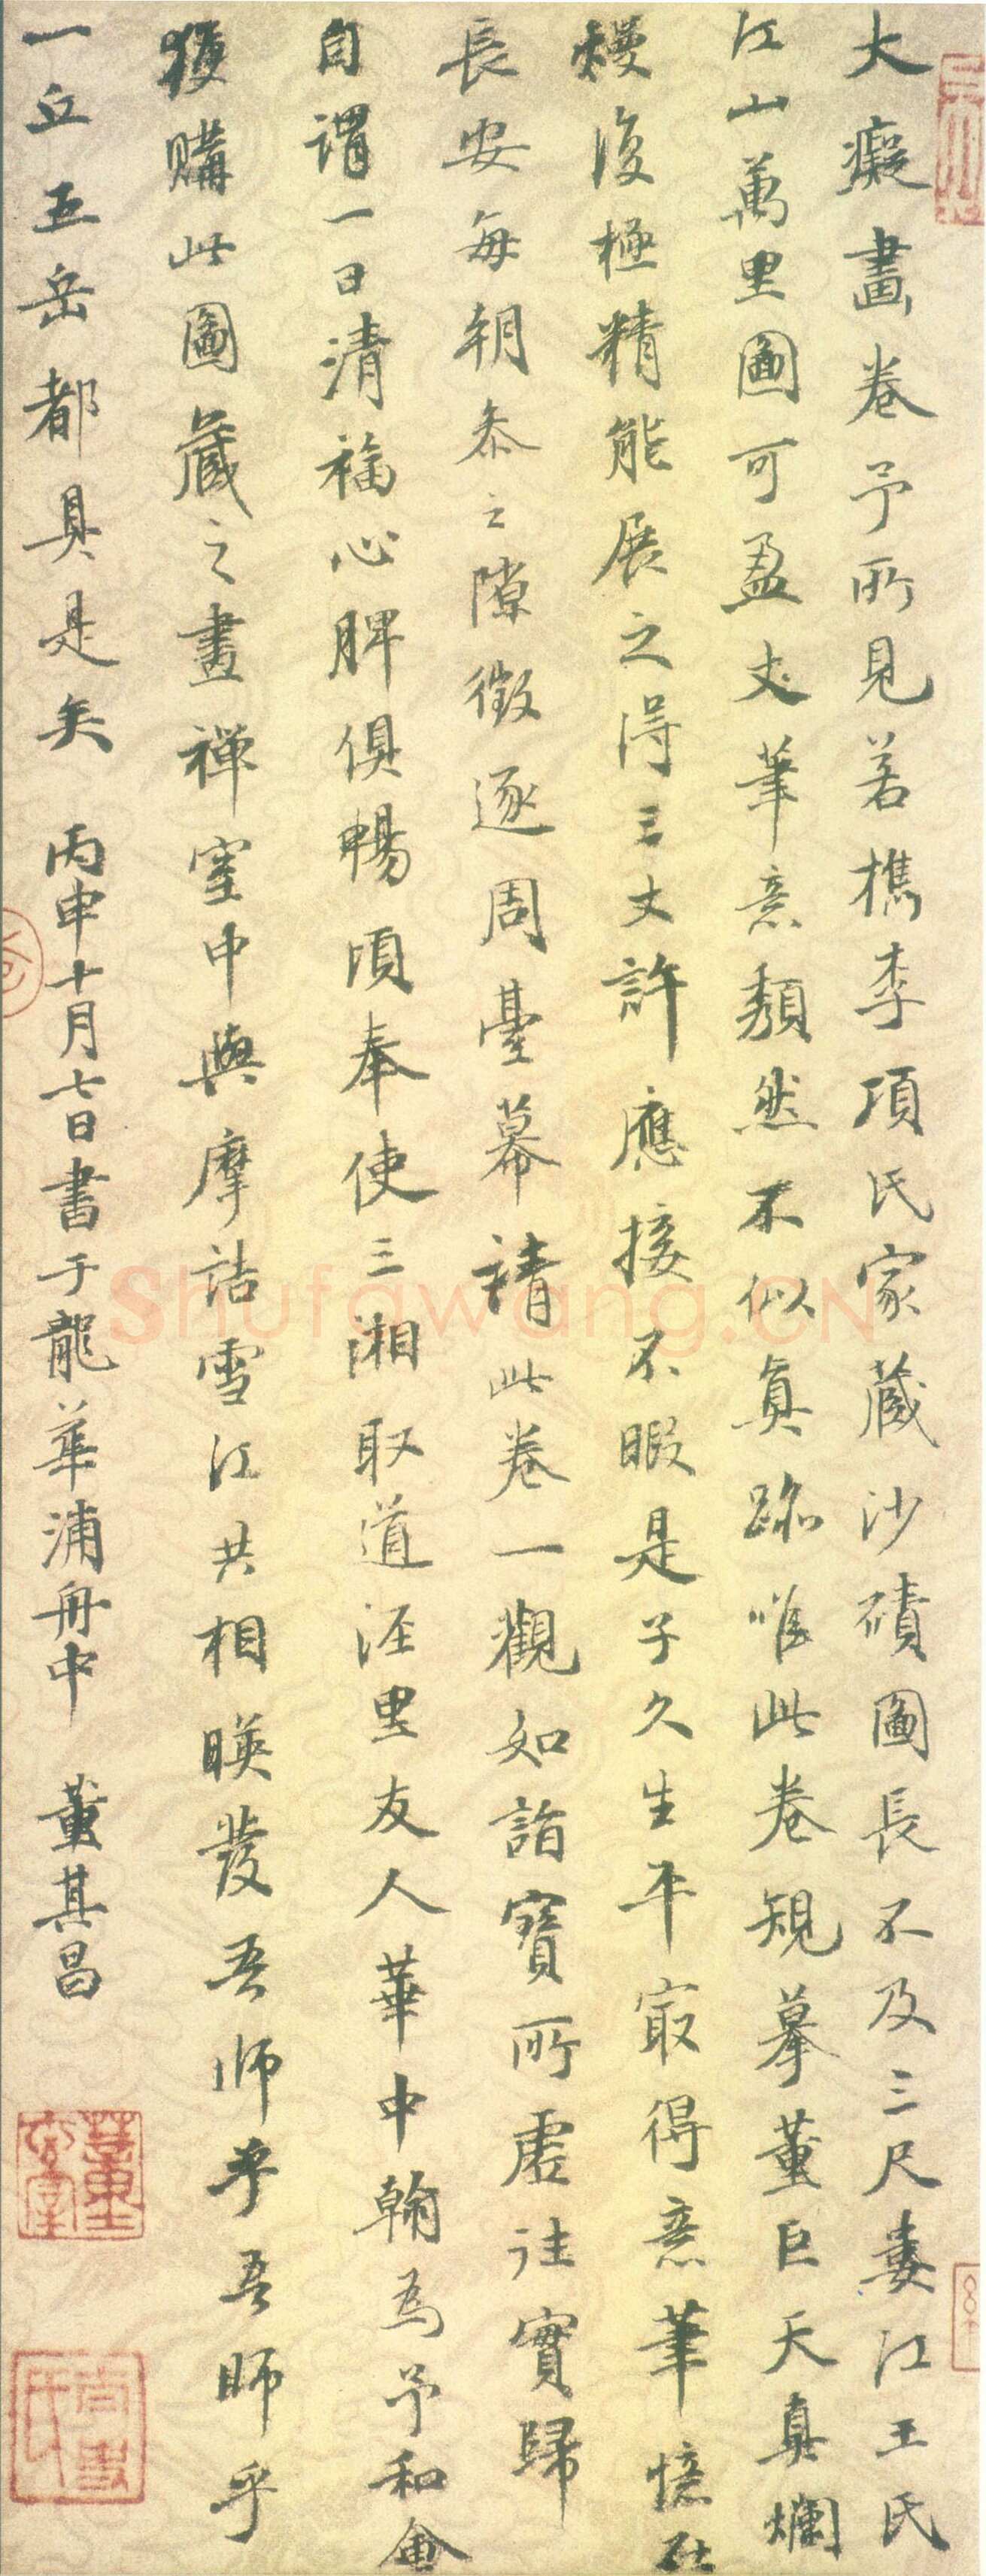 大癡畫卷予所見若檇李項氏家藏沙磧圖長不及三尺婁江王氏
江山萬里圖可盈丈筆意頹然不似真跡唯此卷規摹董巨天真爛
熳復極精能展之得三丈許應接不暇是子久生平㝡得意筆憶在
長安每朝叅之隙徵逐周臺幕請此卷一觀如詣寶所虛往實歸
自謂一日清福心脾俱暢頃奉使三湘取道涇里友人華中翰為予和會
獲購此圖藏之畫禪室中與摩詰雪江共相暎發吾師乎吾師乎
一丘五岳都具是矣 丙申十月七日書于龍華浦舟中 董其昌
Shufawang.CN